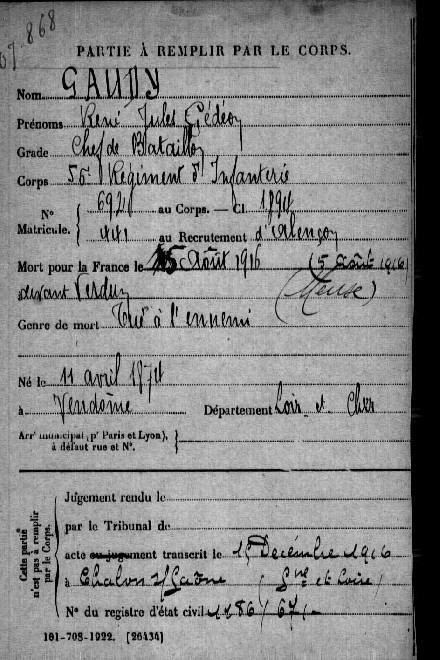 868
PARTIE À REMPLIR PAR LE CORPS.
Nom GAUDY
Prénoms René Jules Gédéon
Grade Chef de Bataillon
Corps 56e Régiment d'Infanterie
N° Matricule. 6921 au Corps. — Cl. 1894
441 au Recrutement d'Alençon
Mort pour la France le 5 Août 1916 (5 Août 1916)
devant Verdun (Meuse)
Genre de mort Tué à l'ennemi
Né le 11 avril 1874
à Vendôme Département Loir et Cher
Arrt municipal (pr Paris et Lyon), à défaut rue et N°.
Cette partie n'est pas à remplir par le Corps.
Jugement rendu le
par le Tribunal de
acte ou jugement transcrit le 15 Décembre 1916
à Chalon s/ Saône (Sne et Loire)
N° du registre d'état civil 1186/67
101-708-1922. [26434]